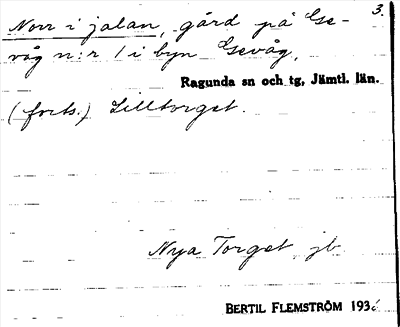 3.
Norr i jalan, gård på Ge-
våg n:r 1 i byn Gevåg,
Ragunda sn och tg, Jämtl. län.
(forts.) Lilltorget.
Nya Torget jb.
BERTIL FLEMSTRÖM 193